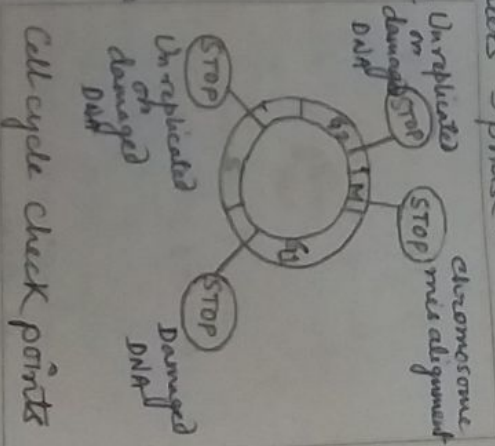 Unreplicated
or
damaged
DNA
STOP
STOP
chromosome
misalignment
G2
M
G1
S
STOP
Unreplicated
or
damaged
DNA
STOP
Damaged
DNA
Cell cycle check points